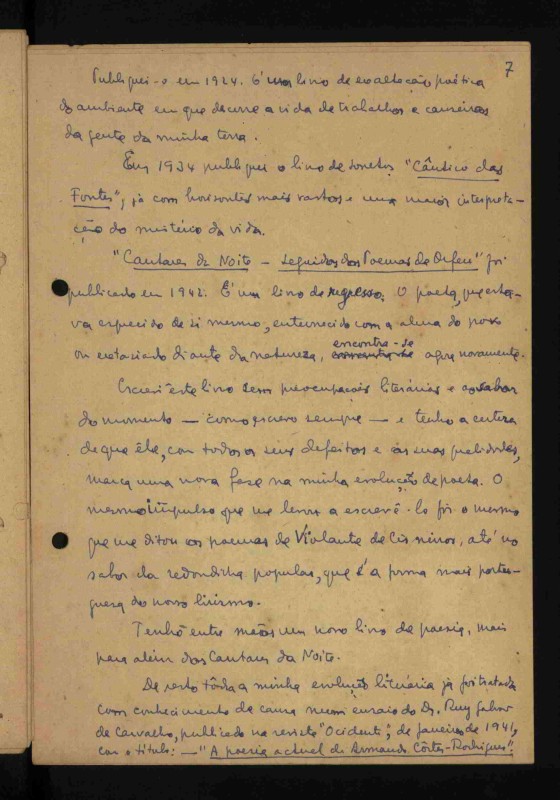 7
Publiquei-o em 1924. É um livro de exaltação poética
do ambiente em que decorre a vida de trabalhos e canseiras
da gente da minha terra.
Em 1934 publiquei o livro de sonetos "Cântico das
Fontes", já com horizontes mais vastos e uma maior interpreta-
ção do mistério da vida.
"Cantares da Noite – seguidos dos Poemas de Orfeu" foi
publicado em 1942. É um livro de regresso. O poeta, que esta-
va esquecido de si mesmo, enternecido com a alma do povo
encontra-se
ou extasiado diante da natureza, agora novamente.
Escrevi êste livro sem preocupações literárias e ao sabor
do momento — como escrevo sempre — e tenho a certeza
de que êle, com todos os seus defeitos e as suas qualidades,
marca uma nova fase na minha evolução de poeta. O
mesmo impulso que me levou a escrevê-lo foi o mesmo
que me ditou os poemas de Violante de Cisneiros, até no
sabor da redondilha popular, que é a forma mais portu-
guesa do nosso lirismo.
Tenho entre mãos um novo livro de poesia, mais
para além dos Cantares da Noite.
De resto tôda a minha evolução literária já foi tratada
com conhecimento de causa num ensaio do Dr. Ruy Galvão
de Carvalho, publicado na revista "Ocidente", de Janeiro de 1941,
com o título: — "A poesia actual de Armando Côrtes-Rodrigues".